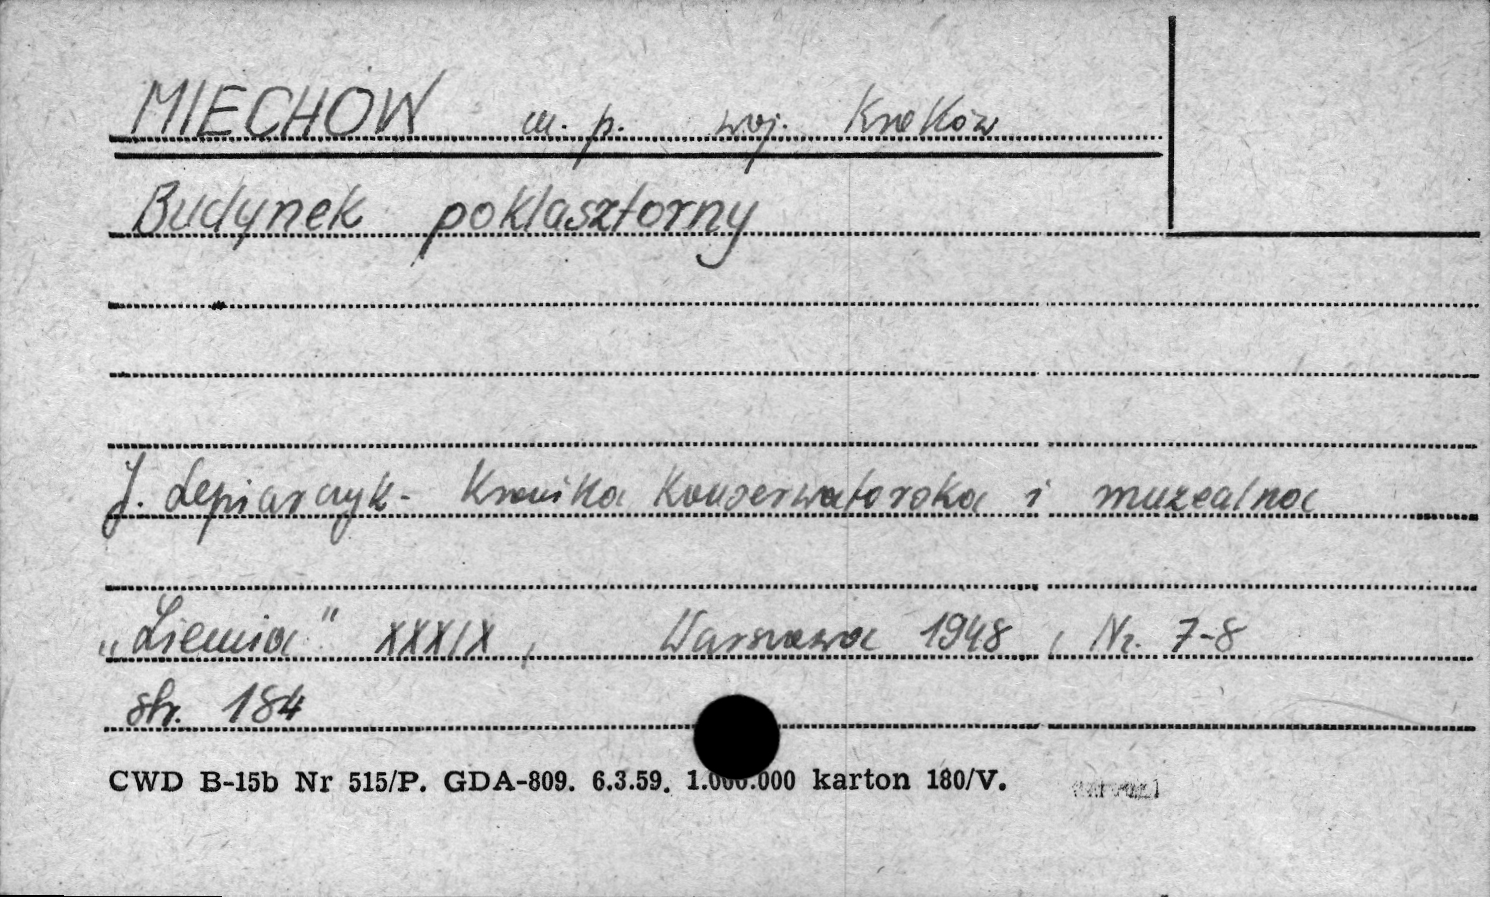 MIECHÓW m. p. woj. Kraków
Budynek poklasztorny
J. Lepiarczyk - Kronika Konserwatorska i muzealna
„Ziemia" XXXIX, Warszawa 1948, Nr. 7-8
str. 184
CWD B-15b Nr 515/P. GDA-809. 6.3.59. 1.000.000 karton 180/V.